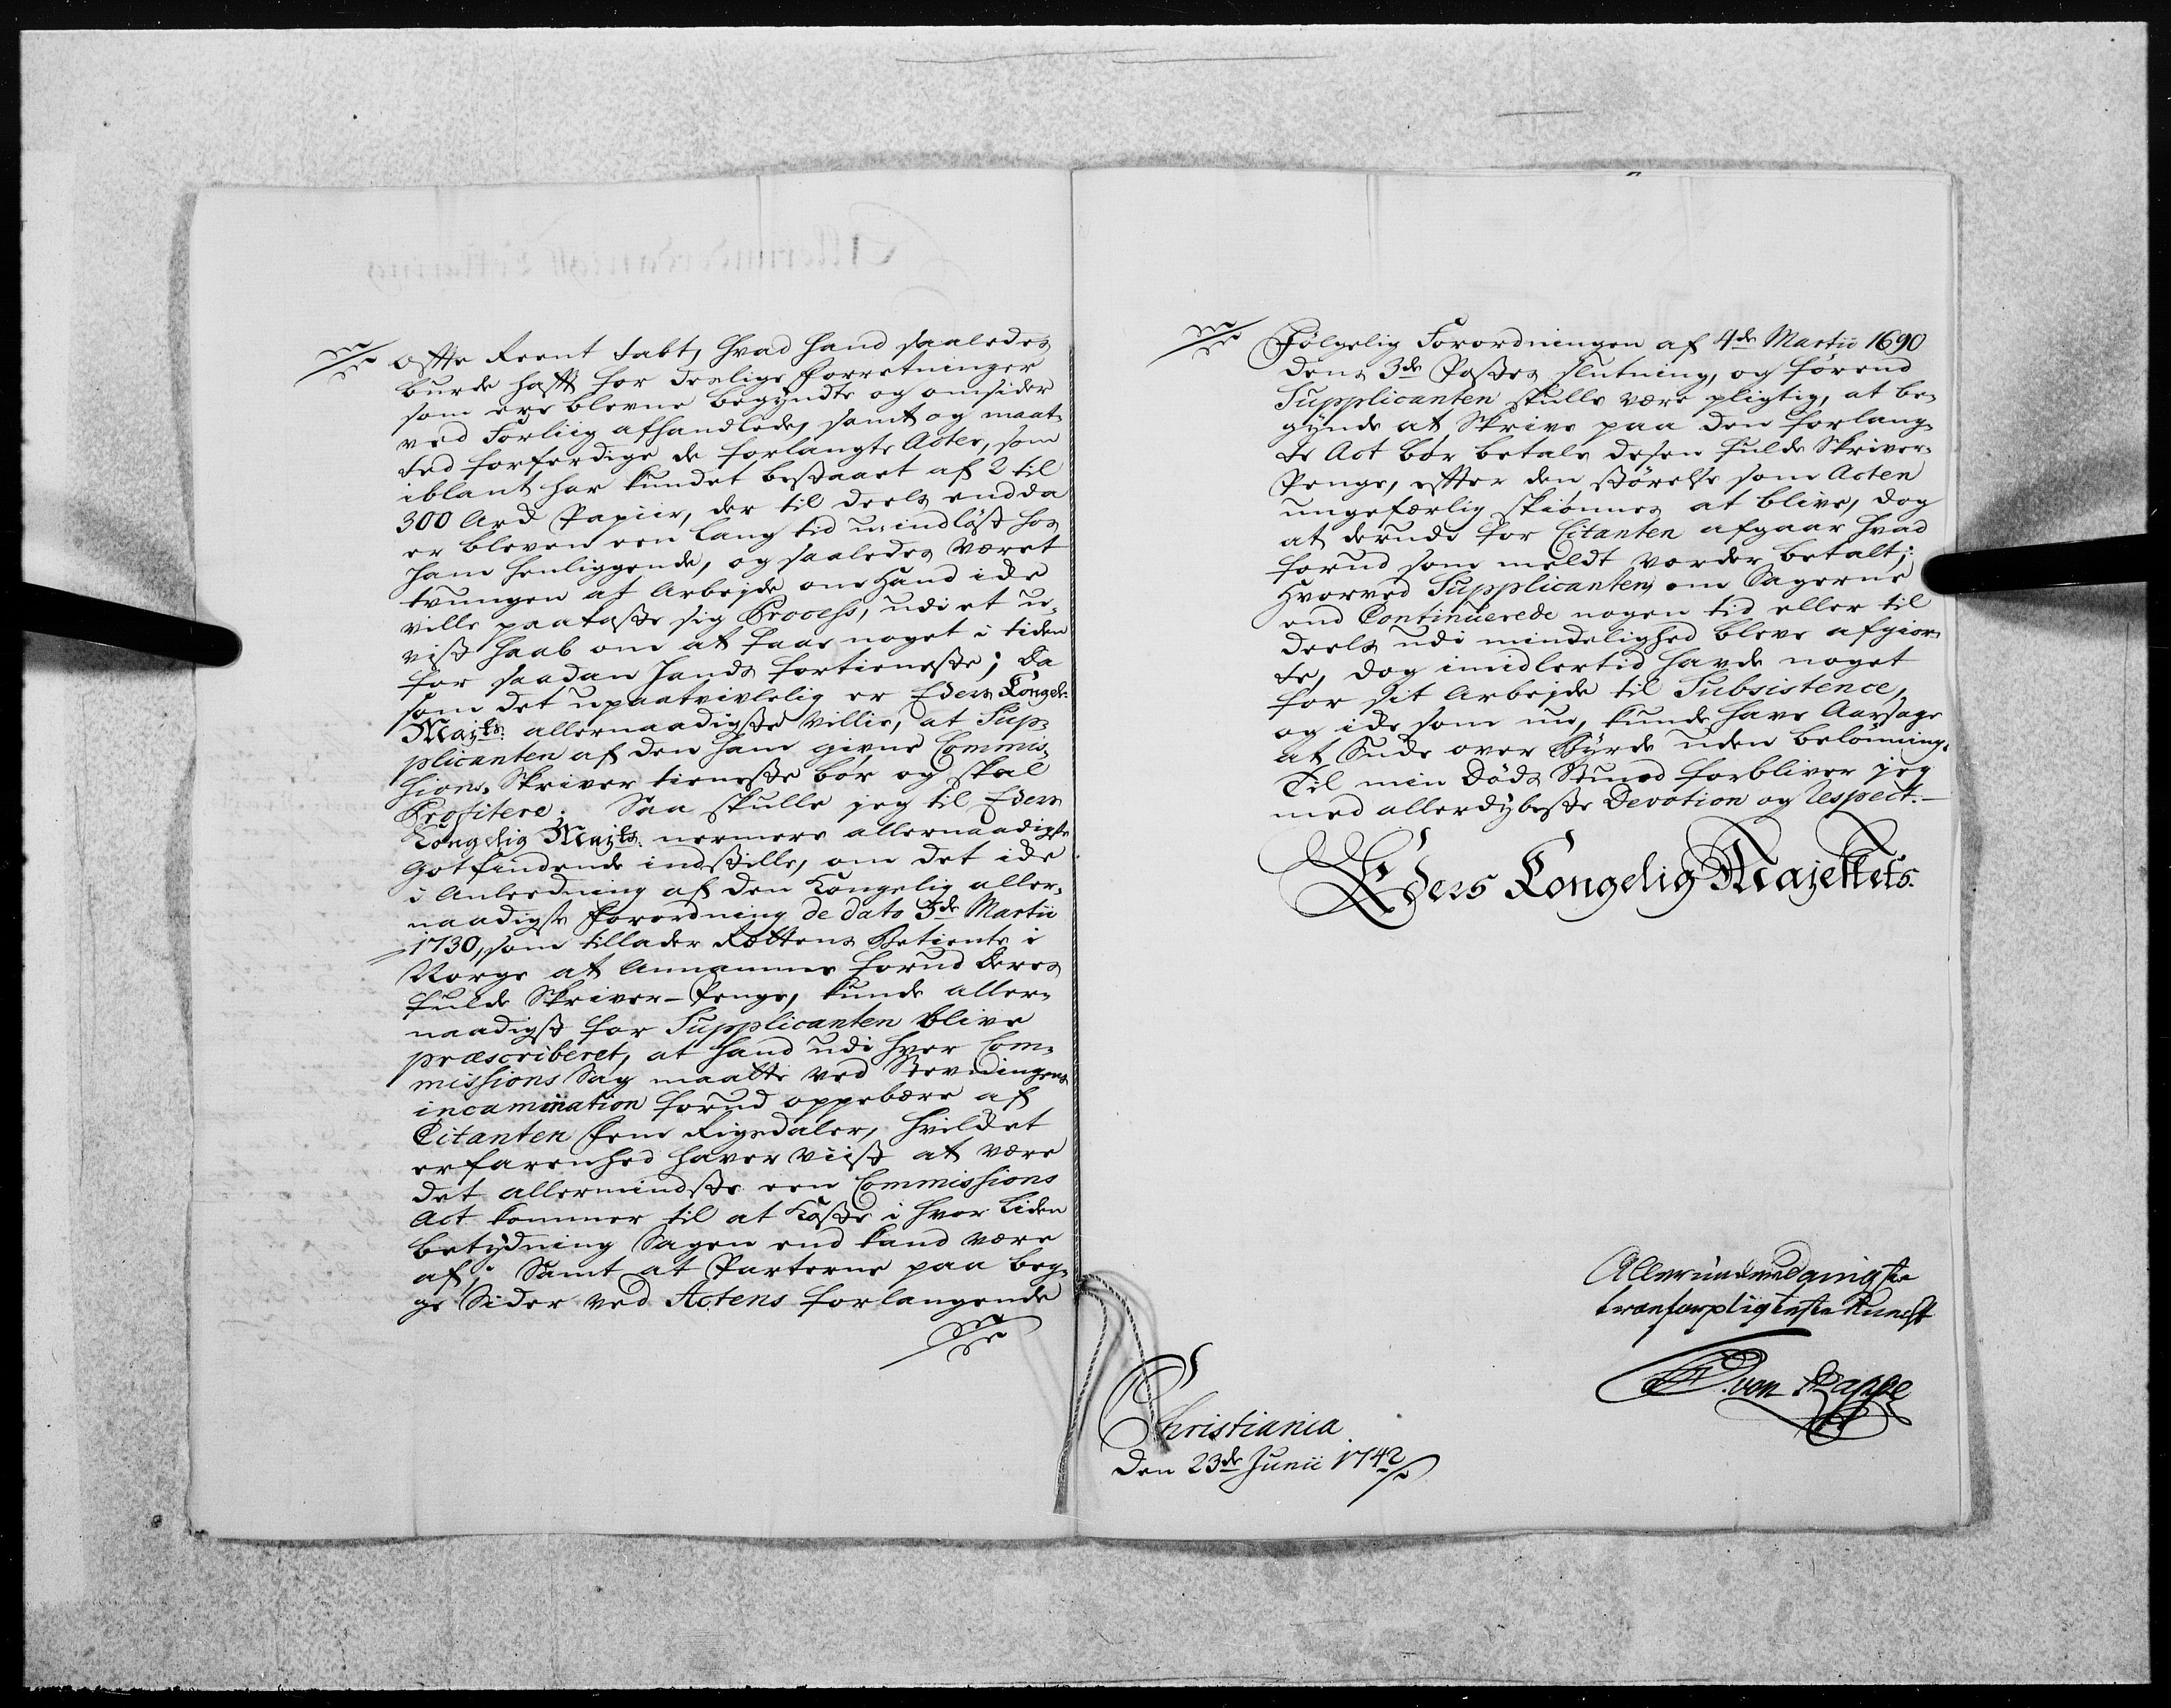 offte Reent tabt, hvad hand saaledes
burde hafft for deslige forretninger
som ere blevne begyndte og omsider
ved Forliig afhandlede, samt og maat-
ted forferdige de forlangte Acter, som
iblant har kundet bestaaet af 2 til
300 Ark Papiir, der til deels endda
er bleven een lang tid uindløst hos
ham henliggende, og saaledes været
tvungen at Arbejde om hand icke
ville paatage sig Process, udi et u-
vist haab om at faae noget i tiden
for saadan hands fortieneste; Da
som det upaatvivlelig er Eders Kongel:
Mayts: allernaadigste Villie, at Sup-
plicanten af den ham givne Commis-
sions-Skriver tieneste bør og skal
Profitere. Saa skulle jeg til Eders
Kongelig Mayts: nermere allernaadigste
gotfindende indstille, om det icke
i Anleedning af den Kongelig aller-
naadigste Forordning de dato 3de Martii
1730, som tillader Rettens Betiente i
Norge at Annamme forud deres
fulde Skriver-Penge, kunde aller-
naadigst for Supplicanten blive
præscriberet, at hand udi hver Com-
missions Sag maatte ved Stevningens
incamination forud oppebære af
Citanten fem Rigsdaler, hvilcket
erfarenhed haver viist at være
det allermindste een Commissions
Act kommer til at Koste i hvor liden
betydning Sagen end kand være
af; Samt at Parterne paa beg-
ge Sider ved Actens forlangende
Følgelig Forordningen af 4de Martii 1690
dens 3de Postes slutning, og førend
Supplicanten skulle være pligtig, at be-
gynde at Skrive paa den forlang-
te Act bør betale desen fulde Skriver-
Penge, effter den størelse som Acten
ungefærlig skiønnes at blive, dog
at derudi for Citanten afgaar hvad
forud som meldt vorder betalt;
hvorved Supplicanten, om Sagerne
end Continuerede nogen tid eller til
deels udi mindelighed bleve afgior-
te, dog imidlertid havde noget
for sit Arbejde til Subsistence,
og icke som nu, kunde have Aarsage
at Sucke over Byrde uden belønning.
Til min Døds Stund forbliver jeg
med allerdybeste Devotion og respect.
Eders Kongelig Majestets.
Allerunderdanigste
troepligtigste Knecht
von Rappe
Christiania
den 23de Junii 1742